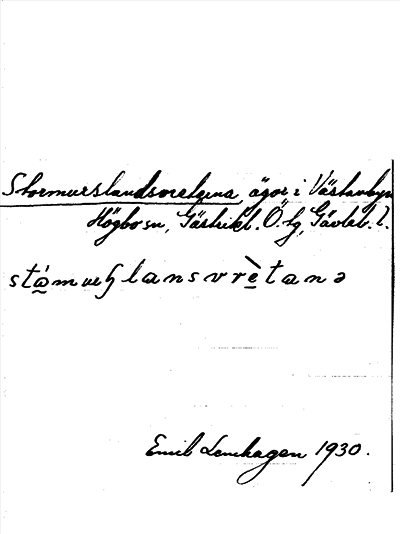 Stormurslandsvretarna, ägor i Västanbyn
Högbo sn, Gästrikl. Ö. tg, Gävleb. l.
stámuꞕlansvrètanə
Emil Lenhagen 1930.